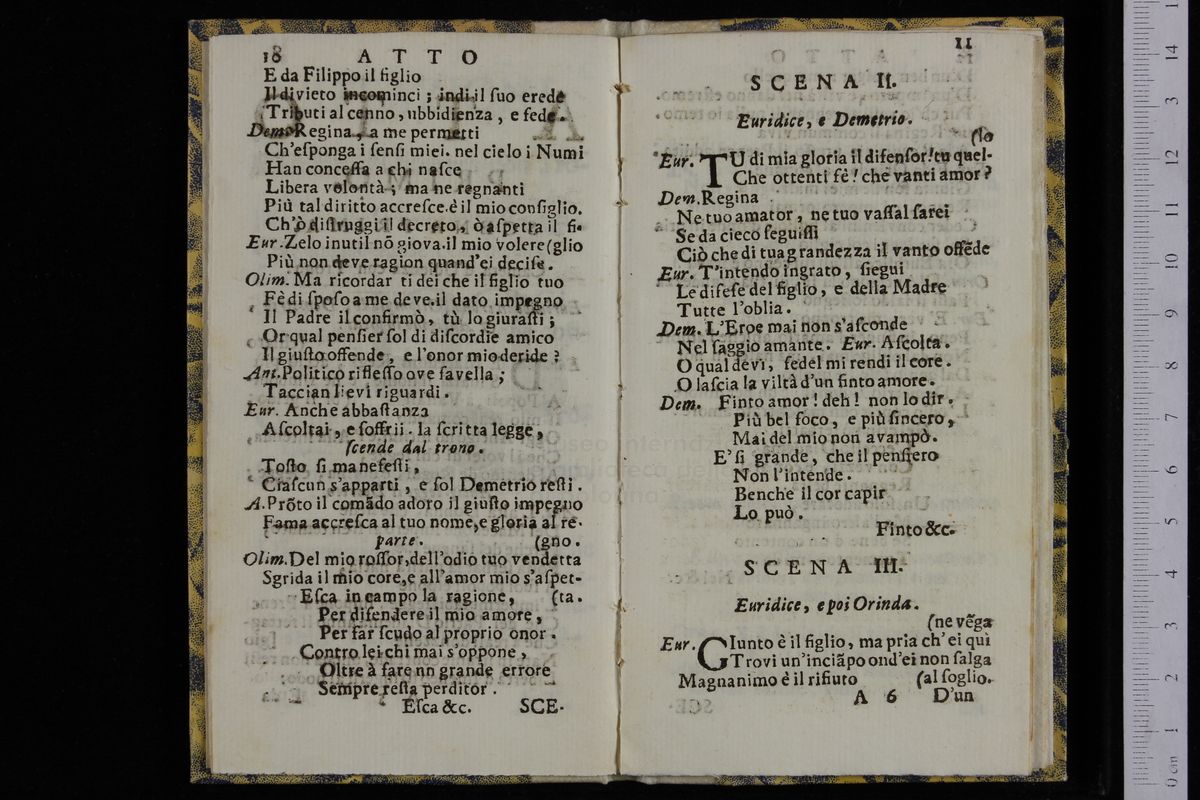 18 ATTO
E da Filippo il figlio
Il divieto incominci ; indi il ſuo erede
Tributi al cenno, ubbidienza, e fede.
Dem. Regina, a me permetti
Ch'eſponga i ſenſi miei. nel cielo i Numi
Han conceſſa a chi naſce
Libera volontà ; ma ne regnanti
Più tal diritto accreſce.è il mio conſiglio.
Ch'ò diſtruggi il decreto, ò aſpetta il fi-
Eur. Zelo inutil nõ giova.il mio volere (glio
Più non deve ragion quand'ei deciſe.
Olim. Ma ricordar ti dei che il figlio tuo
Fè di ſpoſo a me deve.il dato impegno
Il Padre il confirmò, tù lo giuraſti ;
Or qual penſier ſol di diſcordie amico
Il giuſto offende, e l'onor mio deride ?
Ant. Politico rifleſſo ove favella ;
Taccian lievi riguardi.
Eur. Anche abbaſtanza
Aſcoltai, e ſoffrii. la ſcritta legge,
ſcende dal trono.
Toſto ſi manefeſti,
Ciaſcun s'apparti, e ſol Demetrio reſti.
A. Prõto il comãdo adoro il giuſto impegno
Fama accreſca al tuo nome,e gloria al re-
parte. (gno.
Olim. Del mio roſſor,dell'odio tuo vendetta
Sgrida il mio core,e all'amor mio s'aſpet-
Eſca in campo la ragione, (ta.
Per difendere il mio amore,
Per far ſcudo al proprio onor.
Contro lei chi mai s'oppone,
Oltre à fare nn grande errore
Sempre reſta perditor.
Eſca &c. SCE-
11
SCENA II.
Euridice, e Demetrio.
(lo
Eur. TU di mia gloria il difenſor! tu quel-
Che ottenti fè! che vanti amor?
Dem. Regina
Ne tuo amator, ne tuo vaſſal ſarei
Se da cieco ſeguiſſi
Ciò che di tua grandezza il vanto offẽde
Eur. T'intendo ingrato, ſiegui
Le difeſe del figlio, e della Madre
Tutte l'oblia.
Dem. L'Eroe mai non s'aſconde
Nel ſaggio amante. Eur. Aſcolta.
O qual devi, fedel mi rendi il core.
O laſcia la viltà d'un finto amore.
Dem. Finto amor! deh! non lo dir.
Più bel foco, e più ſincero,
Mai del mio non avampò.
E' ſi grande, che il penſiero
Non l'intende.
Benche il cor capir
Lo può.
Finto &c.
SCENA III.
Euridice, e poi Orinda.
(ne vẽga
Eur. GIunto è il figlio, ma pria ch'ei qui
Trovi un'inciãpo ond'ei non ſalga
Magnanimo è il rifiuto (al ſoglio.
A 6 D'un